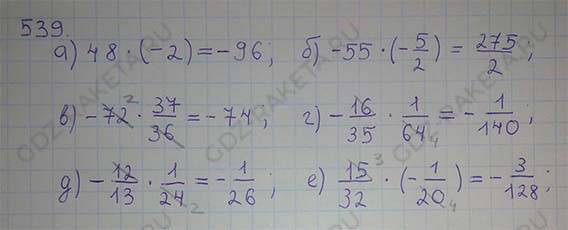 539.
а) 48 · (-2) = -96; б) -55 · (-5/2) = 275/2;
в) -72 2 · 37/36 = -74; г) -16/35 · 1/64 4 = -1/140;
д) -12/13 · 1/24 2 = -1/26; е) 15 3/32 · (-1/20 4) = -3/128;
GDZ-RAKETA.RU
GDZ-RAKETA.RU